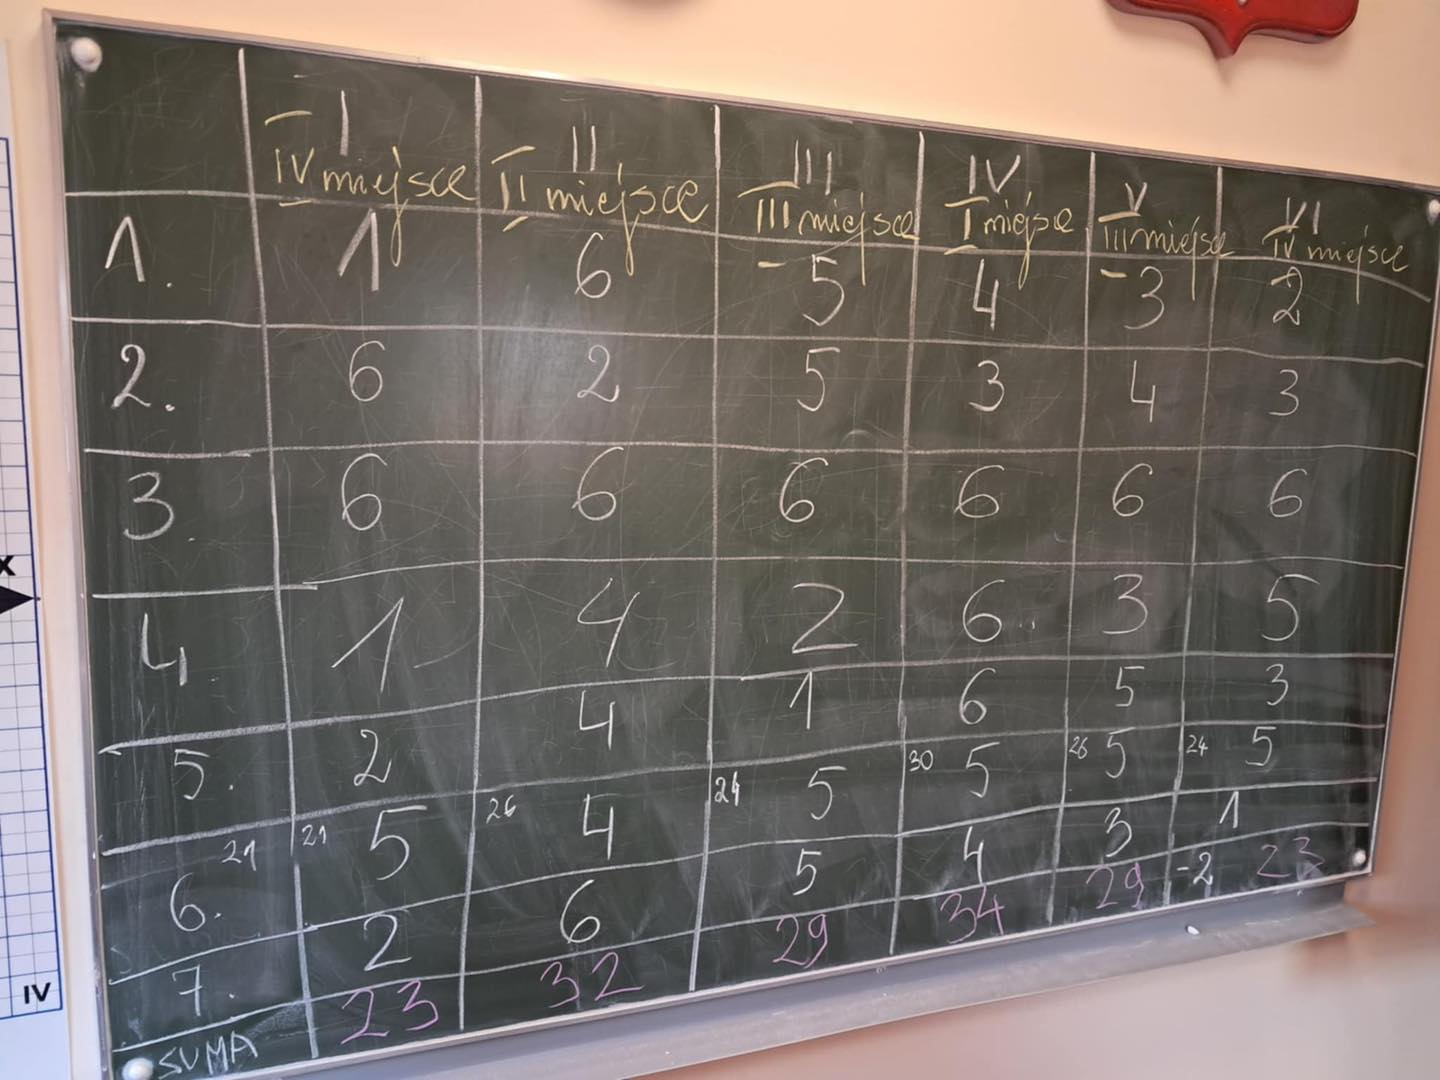 I II III IV V VI
IV miejsce II miejsce III miejsce I miejsce III miejsce IV miejsce
1. 1 6 5 4 3 2
2. 6 2 5 3 4 3
3. 6 6 6 6 6 6
4. 1 4 2 6 3 5
5. 2 4 1 6 5 3
6. 21 21 5 26 4 24 5 30 5 26 5 24 5
7. 2 6 5 4 3 1
-2
SUMA 23 32 29 34 29 23
X
IV